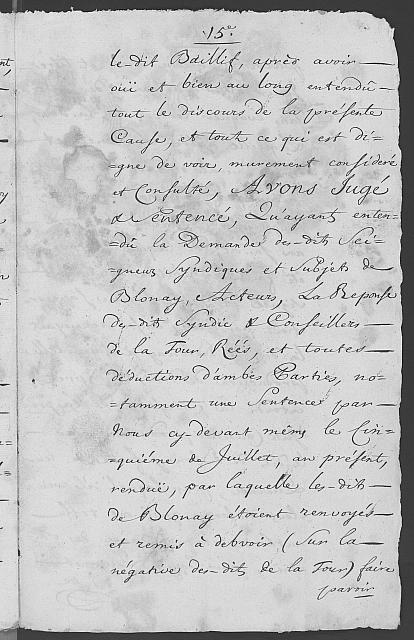 15.e
le-dit Baillif, après avoir
oüi et bien au long entendû
tout le discours de la présente
Cause, et tout ce qui est di=
=gne de voir, murement consideré
et Consulté, Avons Jugé
& Sentencé, Qu'ayant enten=
=dû la Demande des-dits Sei=
=gneur Syndiques et Subjets de
Blonay, Acteurs, La Réponse
des-dits Syndic & Conseillers
de la Tour, Réés, et toutes
déductions d'ambes Parties, no=
=tamment une Sentence par
Nous cy-devant même le Cin=
=quiéme de Juillet, an présent,
renduë, par laquelle les-dits
de Blonay étoient renvoyés
et remis à debvoir (Sur la
négative des-dits de la Tour) faire
paroir